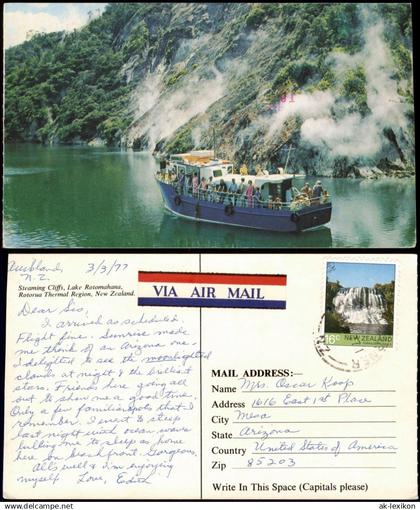 Auckland, 3/3/77
N.Z.
Steaming Cliffs, Lake Rotomahana,
Rotorua Thermal Region, New Zealand.
Dear Sis,
I arrived as scheduled.
Flight fine. Sunrise made
me think of an Arizona one.
I delighted to see the moonlighted
clouds at night & the brilliant
stars. Friends here going all
out to show me a good time.
Only a few familiar spots that I
remember. I went to sleep
last night with ocean waves
lulling me to sleep as home
here on beachfront. Gorgeous.
All well & I'm enjoying
myself. Love, Edith
VIA AIR MAIL
16c NEW ZEALAND
MAIL ADDRESS:—
Name Mrs. Oscar Koop
Address 1616 East 1st Place
City Mesa
State Arizona
Country United States of America
Zip 85203
Write In This Space (Capitals please)
www.delcampe.net
www.ak-lexikon.de